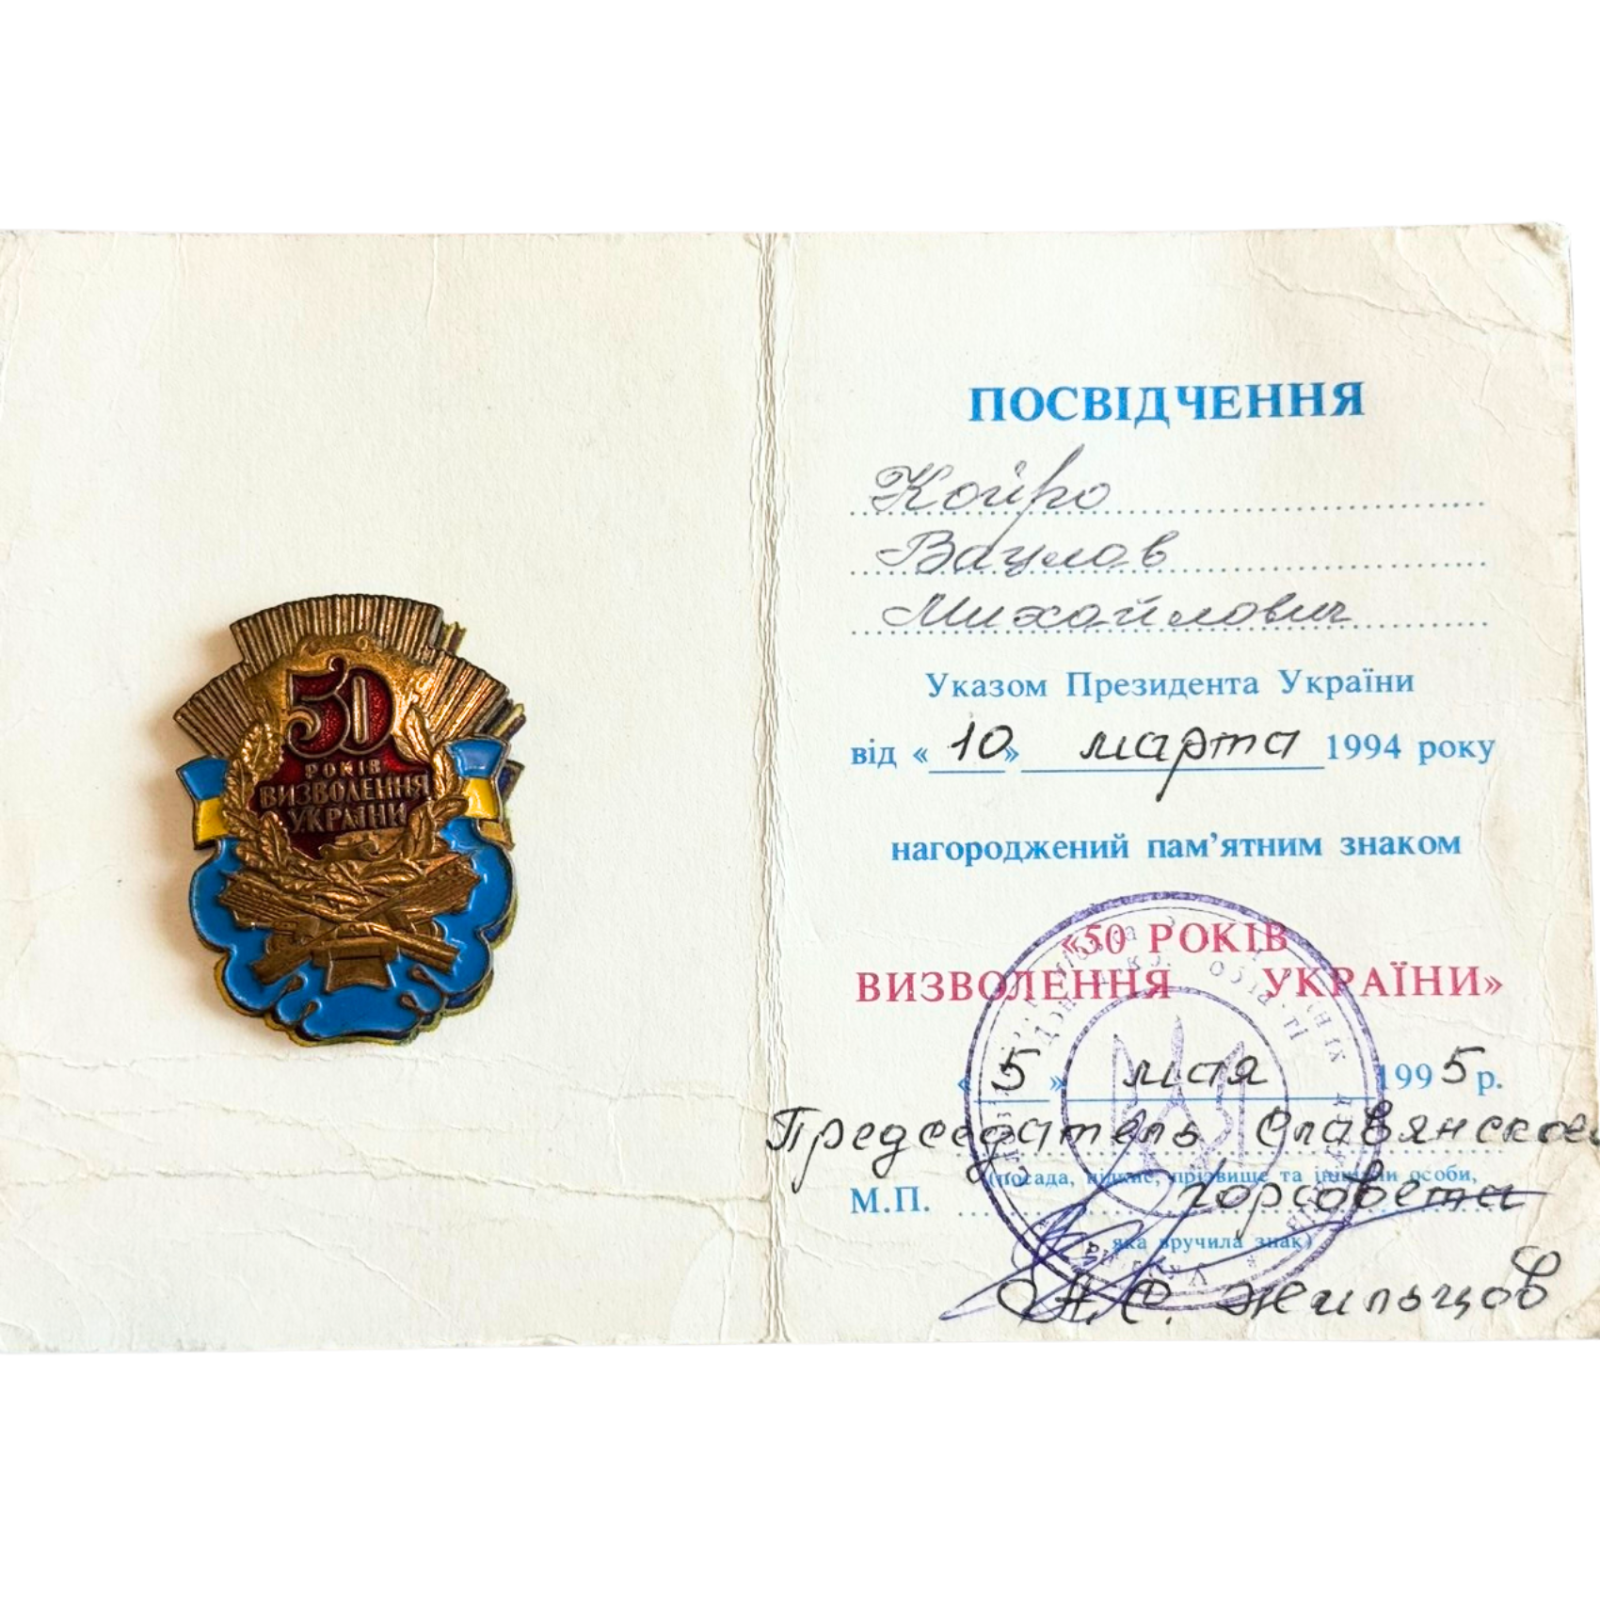 50
РОКІВ
ВИЗВОЛЕННЯ
УКРАЇНИ
ПОСВІДЧЕННЯ
Койро
Вацлав
Михайлович
Указом Президента України
від «10» марта 1994 року
нагороджений пам’ятним знаком
«50 РОКІВ
ВИЗВОЛЕННЯ УКРАЇНИ»
«5» мая 1995 р.
Председатель Славянского
(посада, ім'я, прізвище та ініціали особи,
М.П. горсовета
яка вручила знак)
Жильцов